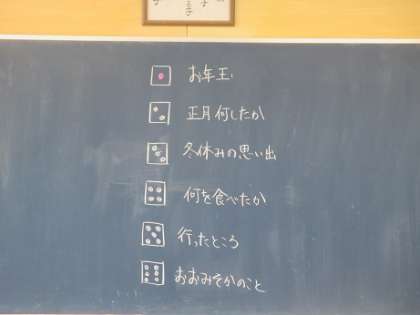 お年玉
正月何したか
冬休みの思い出
何を食べたか
行ったところ
おおみそかのこと